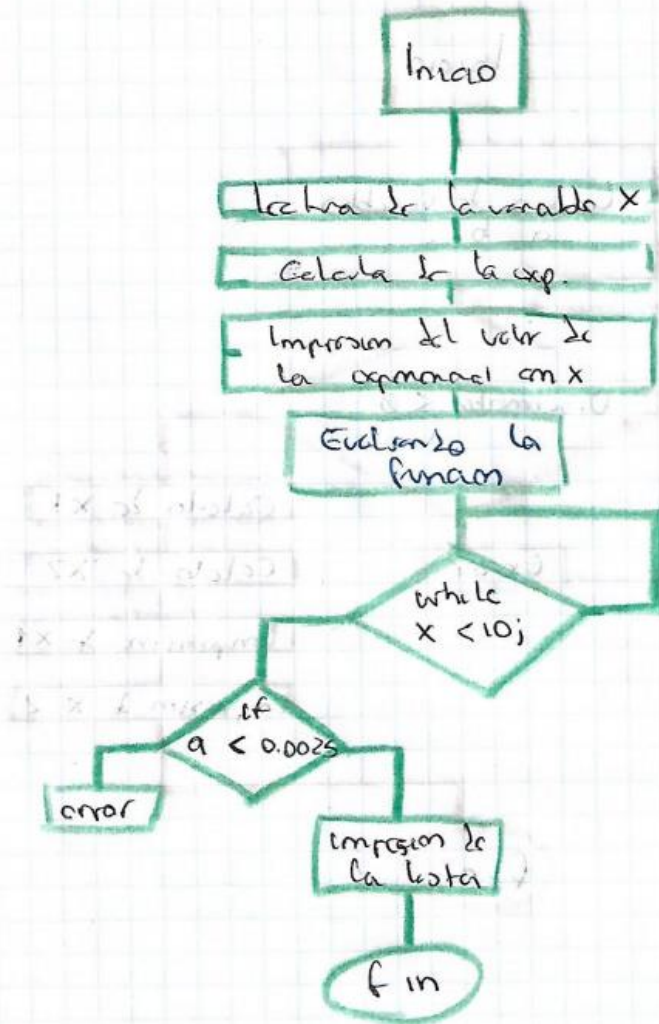 Inicio
Lectura de la variable X
Calcula de la exp.
Impresion del valor de
la exponencial con x
Evaluando la
funcion
while
x < 10;
if
a < 0.0025
error
impresion de
la lista
fin